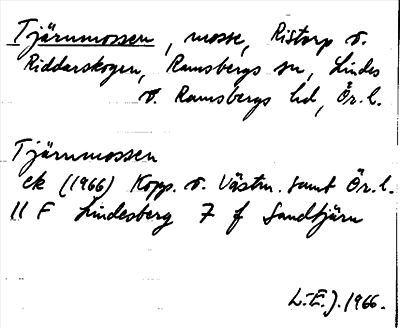 Tjärnmossen, mosse, Ristorp o.
Riddarskogen, Ramsbergs sn, Lindes
o. Ramsbergs hd, Ör. l.
Tjärnmossen
ek (1966) Kopp. o. Västm. samt Ör. l.
11 F Lindesberg 7 f Sandtjärn
L.E.J. 1966.